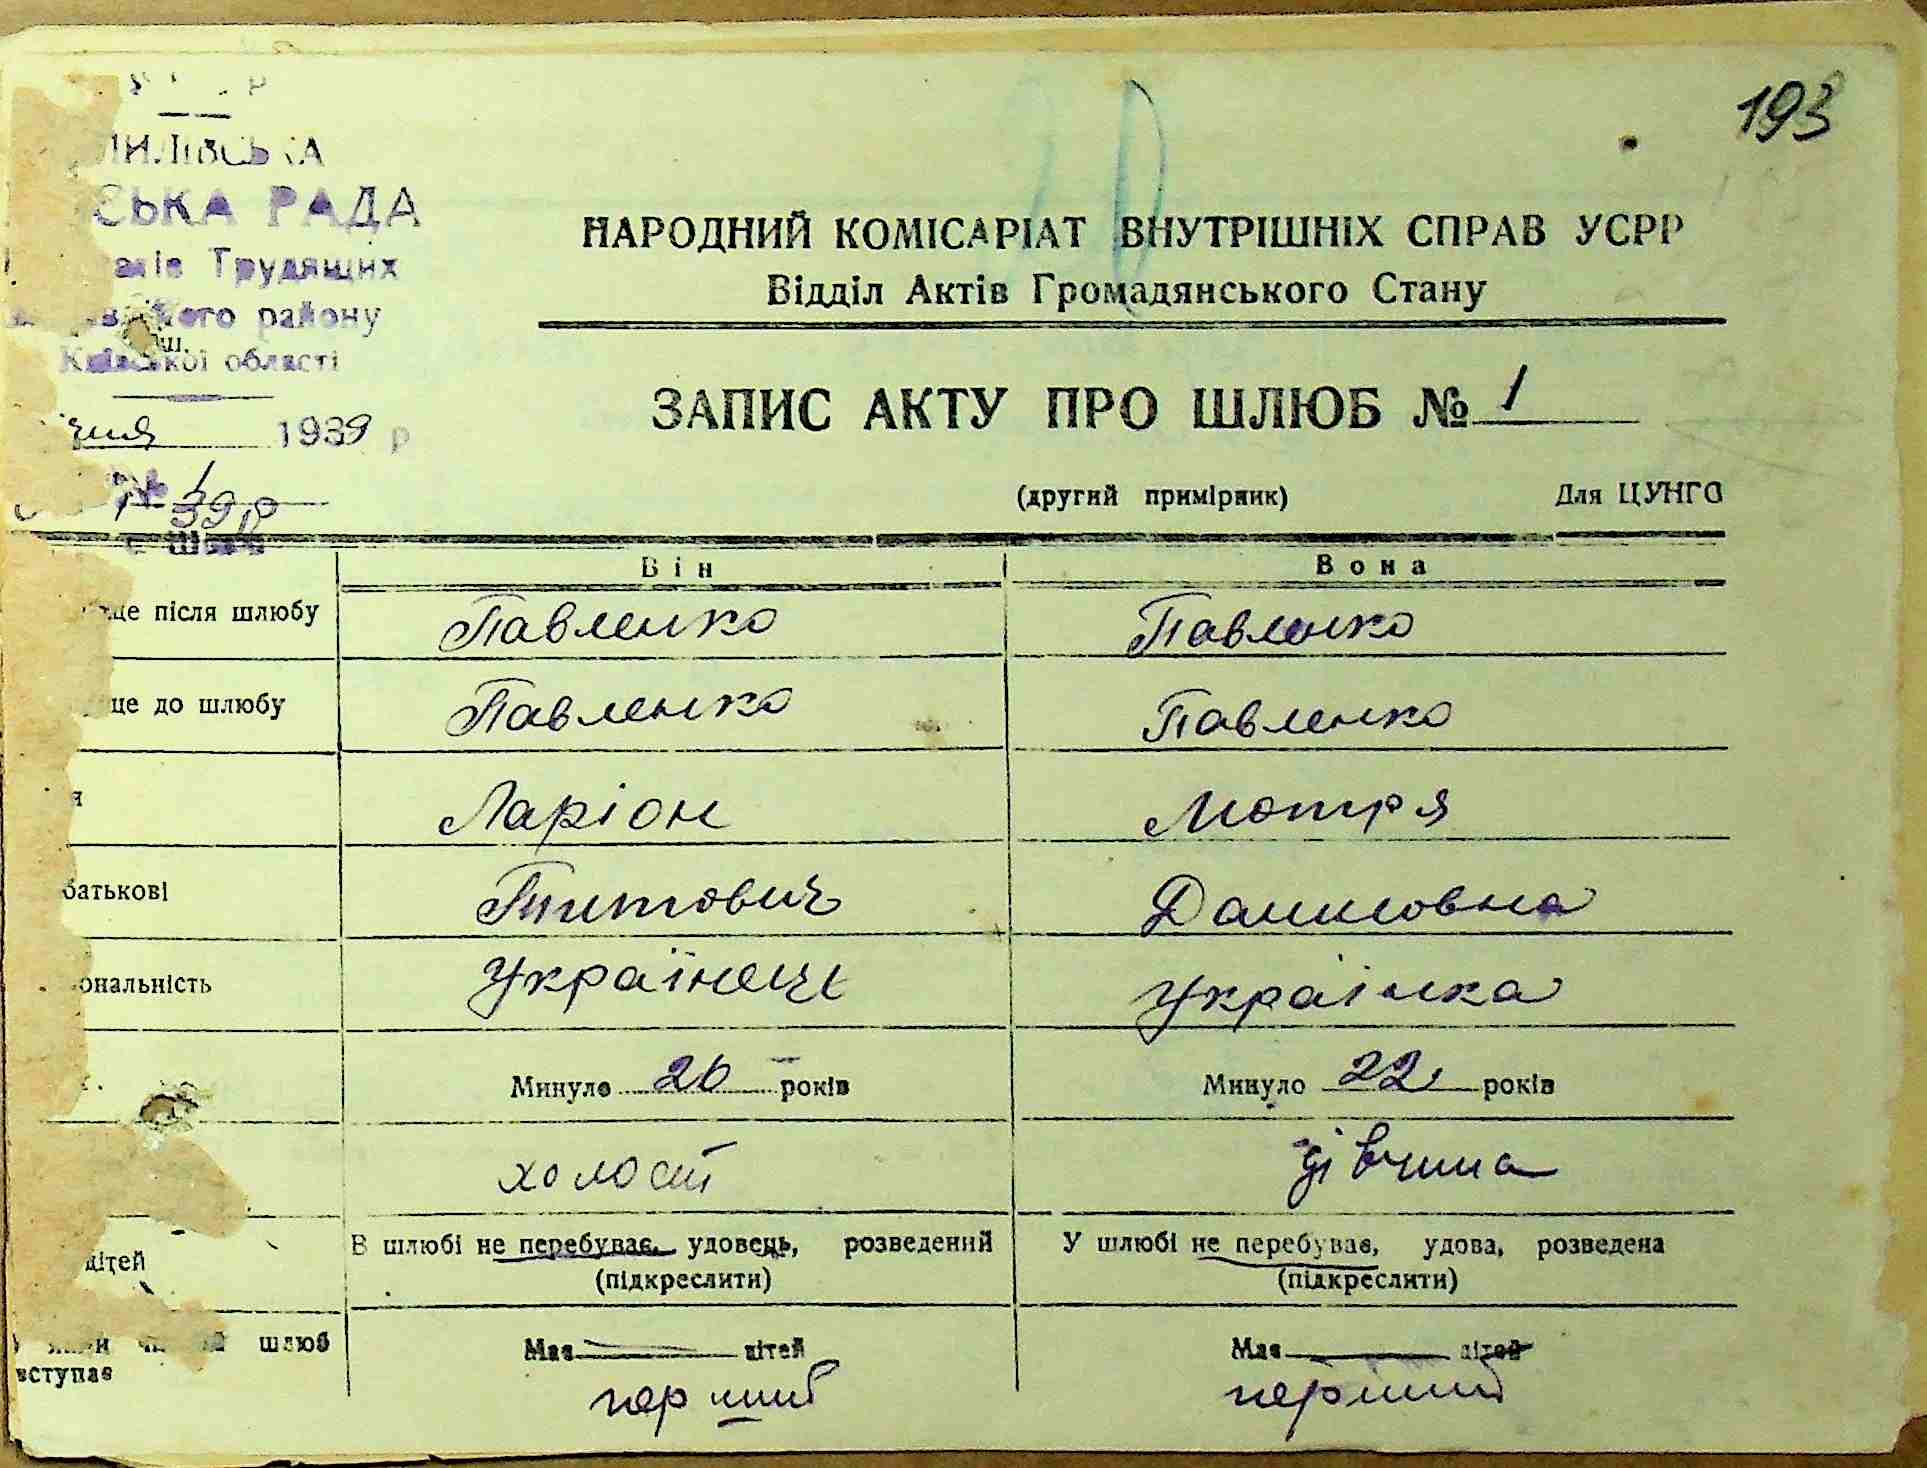 193
СЬКА РАДА
Трудящих
району
Київської області
1939 р
№ 1
39 р
НАРОДНИЙ КОМІСАРІАТ ВНУТРІШНІХ СПРАВ УСРР
Відділ Актів Громадянського Стану
ЗАПИС АКТУ ПРО ШЛЮБ № 1
(другий примірник) Для ЦУНГО
Він Вона
ще після шлюбу Павленко Павленко
ще до шлюбу Павленко Павленко
я Ларіон Мотря
батькові Титович Даниловна
ональність Українець Українка
Минуло 26 років Минуло 22 років
холост дівчина
дітей В шлюбі не перебуває, удовець, розведений У шлюбі не перебуває, удова, розведена
(підкреслити) (підкреслити)
шлюб Має дітей Має дітей
вступає перший перший